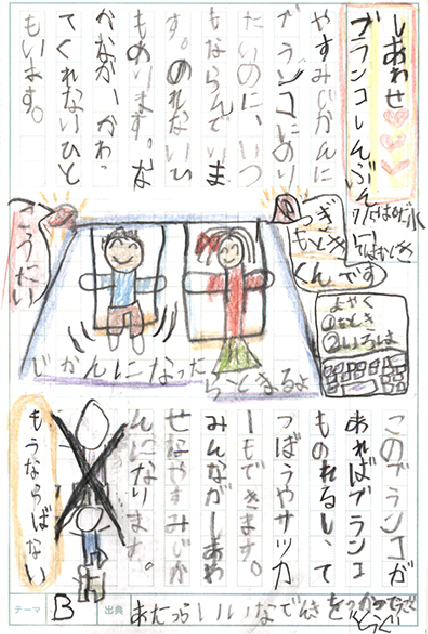 しあわせ
ブランコしんぶん
やすみじかんに
ブランコにのり
たいのに、いつ
もならんでいま
す。のれないひ
もあります。な
かなか、かわっ
てくれないひと
もいます。
つぎ
もとき
くんです
こうたい
よやく
①もとき
②いろは
じかんになったらとまるよ
このブランコが
あればブランコ
ものれるし、て
つぼうやサッカ
ーもできます。
みんながしあわ
せにやすみじか
んになります。
もうならばない
テーマ B 出典 あたっらいいなでんきをつかって